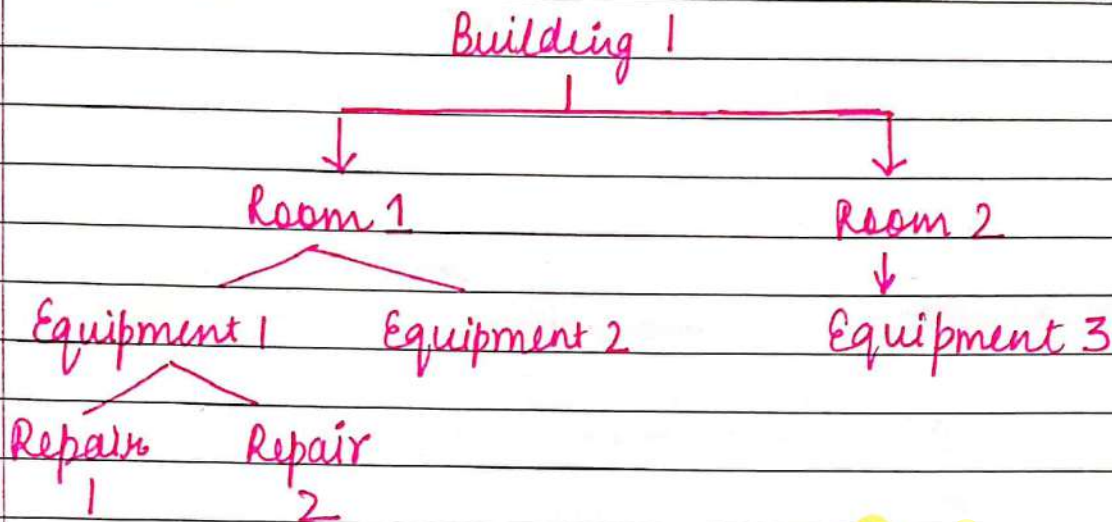 Building 1
Room 1 Room 2
Equipment 1 Equipment 2 Equipment 3
Repair Repair
1 2